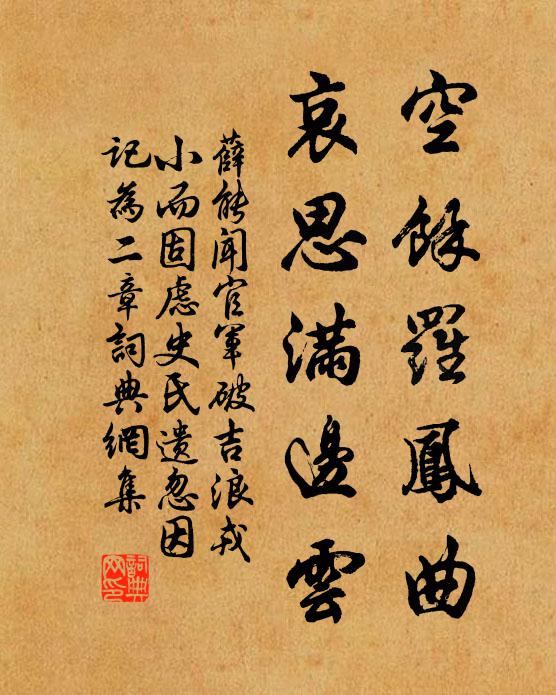 空餘羅鳳曲
哀思滿邊雲
薛能聞官軍破吉浪戎
小而固慮史氏遺忽因
記為二章詞典網集
詞典
网印